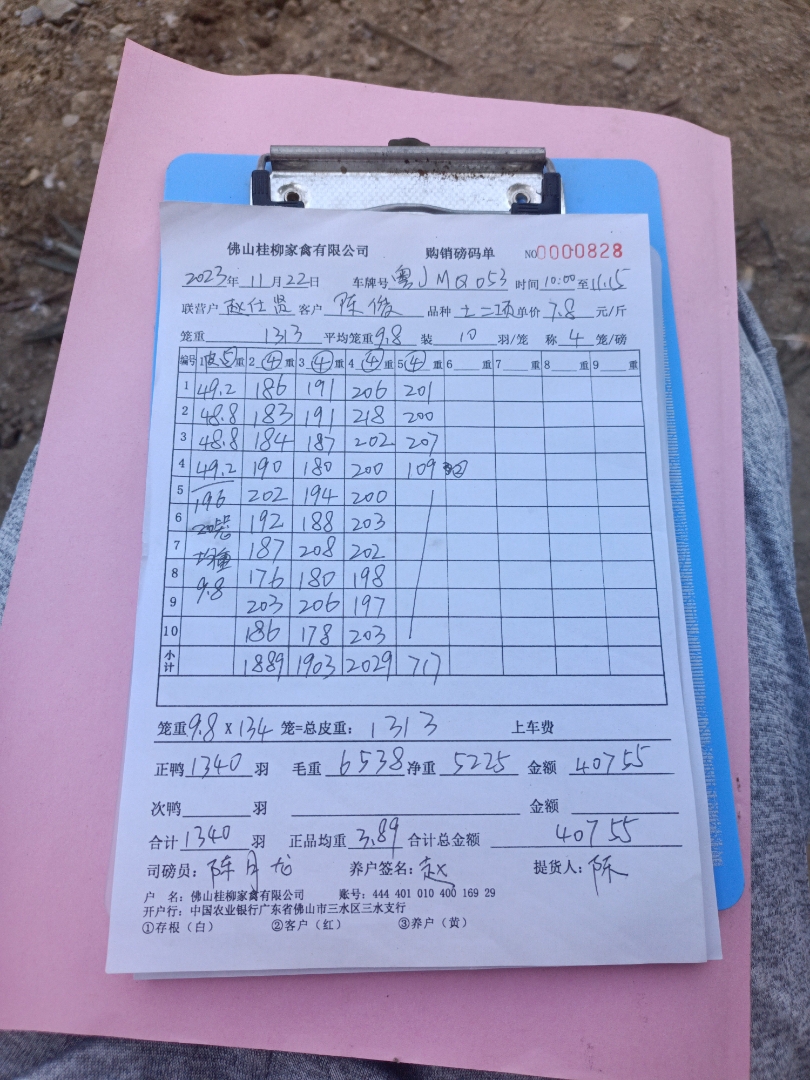 佛山桂柳家禽有限公司 购销磅码单 NO0000828
2023年 11月 22日 车牌号 粤JMQ053 时间 10:00至11:15
联营户 赵仕贤 客户 陈俊 品种 土二项 单价 7.8 元/斤
笼重 1313 平均笼重 9.8 装 10 羽/笼 称 4 笼/磅
编号 1 皮⑤ 重 2 ④ 重 3 ④ 重 4 ④ 重 5 ④ 重 6 重 7 重 8 重 9 重
1 49.2 186 191 206 201
2 48.8 183 191 218 200
3 48.8 184 187 202 207
4 49.2 190 180 200 109 ②
5 196 202 194 200
6 20笼 192 188 203
7 均重 187 208 202
8 9.8 176 180 198
9 203 206 197
10 186 178 203
小计 1889 1903 2029 717
笼重 9.8 X 134 笼=总皮重： 1313 上车费
正鸭 1340 羽 毛重 6538 净重 5225 金额 40755
次鸭 羽 金额
合计 1340 羽 正品均重 3.89 合计总金额 40755
司磅员： 陈月龙 养户签名： 赵 提货人： 陈
户 名：佛山桂柳家禽有限公司 账号：444 401 010 400 169 29
开户行：中国农业银行广东省佛山市三水区三水支行
①存根（白） ②客户（红） ③养户（黄）